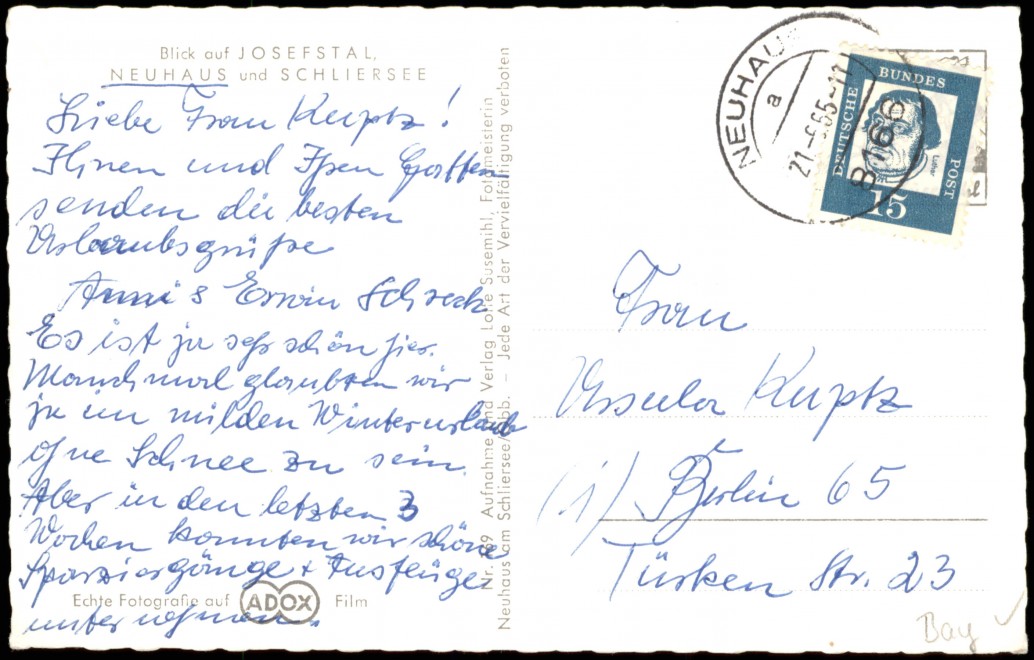 Blick auf JOSEFSTAL,
NEUHAUS und SCHLIERSEE
Liebe Frau Kuptz!
Ihnen und Ihren Gatten
senden die besten
Urlaubsgrüße
Anni & Erwin Schreck
Es ist ja sehr schön hier.
Manchmal glaubten wir
ja im milden Winterurlaub
ohne Schnee zu sein.
Aber in den letzten 3
Wochen konnten wir schöne
Spaziergänge + Ausflüge
unternehmen.
Echte Fotografie auf ADOX Film
Aufnahme und Verlag Lotte Susemihl, Fotomeisterin
Neuhaus am Schliersee/Obb. – Jede Art der Vervielfältigung verboten
NEUHAUS
a
21.-6.65-17
8166
DEUTSCHE BUNDES POST
Luther
15
Frau
Ursula Kuptz
(1) Berlin 65
Türken Str. 23
Bay